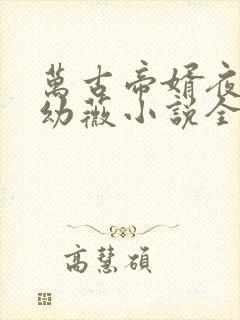 萬古帝婿夜
幼薇小說全
高慧碩